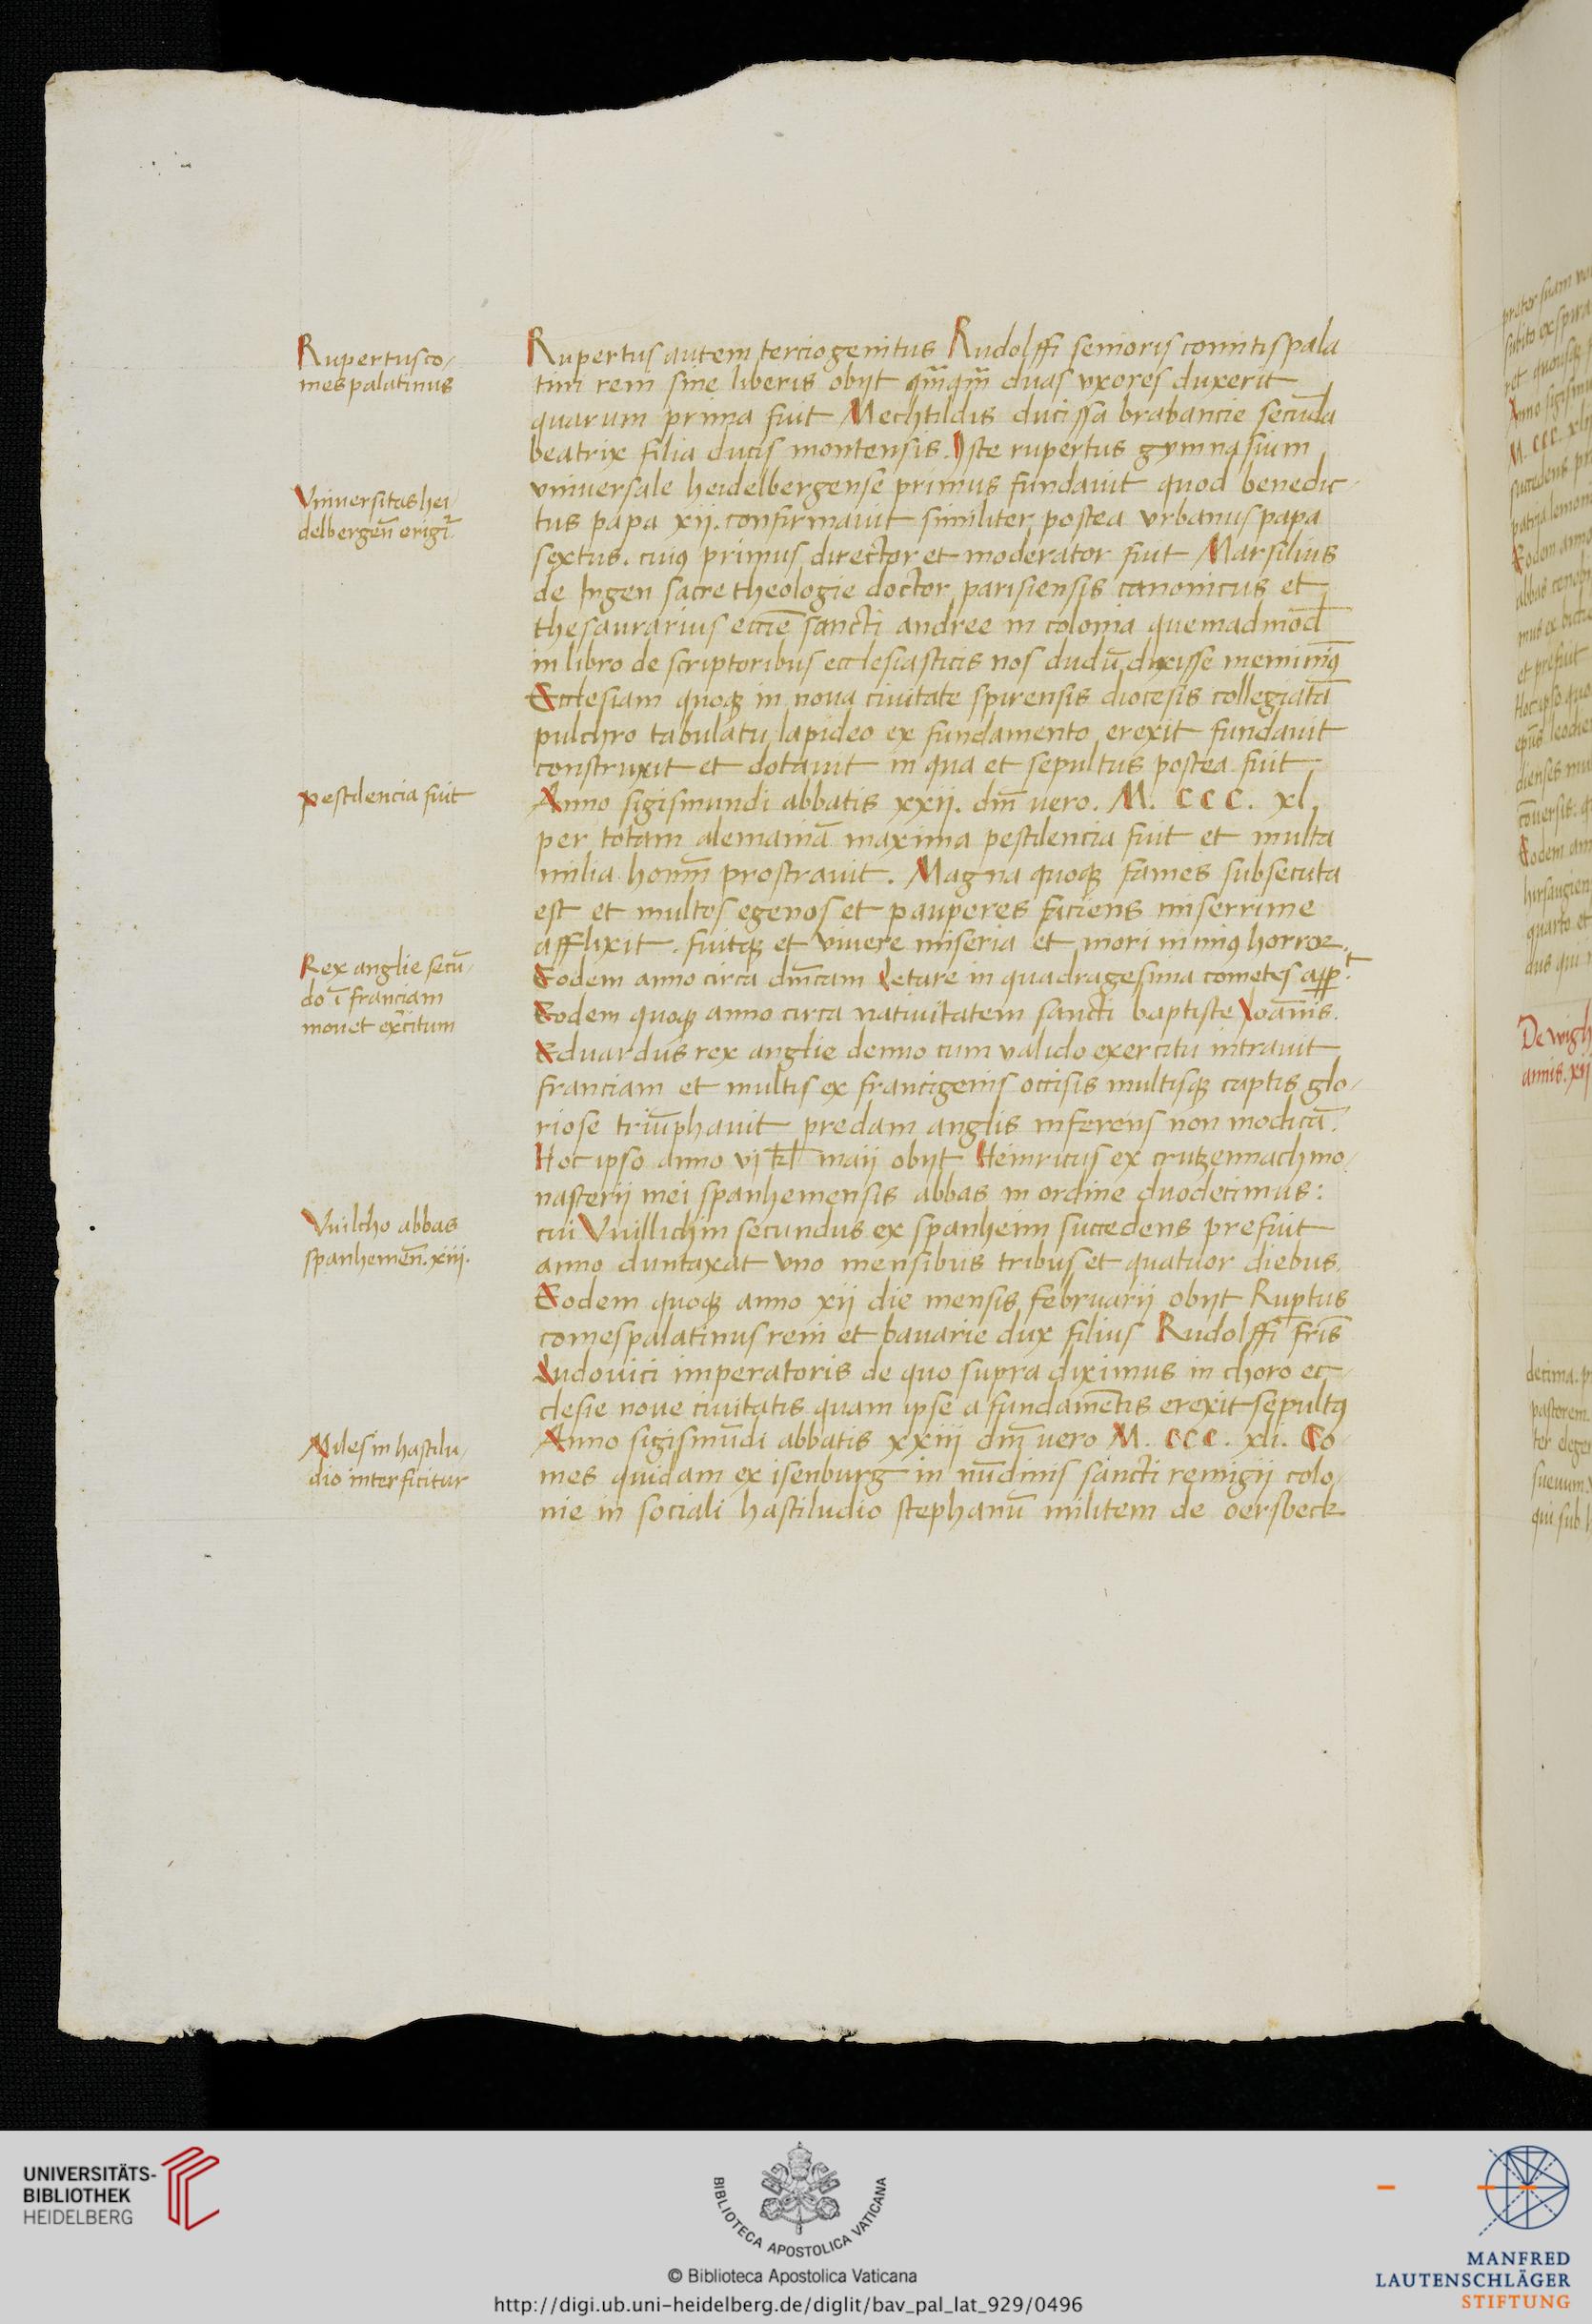 Rupertus co-
mes palatinus
Rupertus autem terciogenitus Rudolffi senioris comitis pala
tini reni sine liberis obijt qm̄qm̄ duas vxores duxerit
quarum prima fuit Mechtildis ducissa brabancie secūda
beatrix filia ducis montensis. Iste rupertus gymnasium
Vniuersitas hei-
delbergeñ erigit̃
vniuersale heidelbergense primus fundauit quod benedic-
tus papa xij. confirmauit similiter postea vrbanus papa
sextus. cuiꝯ primus director et moderator fuit Marsilius
de Ingen sacre theologie doctor parisiensis canonicus et
thesaurarius eccĪe sancti andree in colonia quemadmod̄
in libro de scriptoribus ecclesiasticis nos dudū dixisse meminimꝯ
Ecclesiam quoqꝫ in noua ciuitate spirensis diocesis collegiatā
pulchro tabulatu lapideo ex fundamento erexit fundauit
construxit et dotauit in qua et sepultus postea fuit
pestilencia fuit
Anno sigismundi abbatis xxij. dm̄ vero. M. CCC. xl,
per totam alemaniā maxima pestilencia fuit et multa
milia homīm prostrauit. Magna quoqꝫ fames subsecuta
est et multos egenos et pauperes faciens miserrime
afflixit. fuitqꝫ et viuere miseria et mori nimiꝯ horror.
Rex anglie secū-
do ī franciam
mouet ex̄citum
Eodem anno circa dn̄icam letare in quadragesima cometes aꝑꝑt
Eodem quoqꝫ anno circa natiuitatem sancti baptiste Ioānis.
Eduardus rex anglie denuo cum valido exercitu intrauit
franciam et multis ex francigenis occisis multisqꝫ captis glo-
riose triūphauit predam anglis inferens non modicā.
Hoc ipso anno vi kl̄ maij obijt Heinricus ex crutzennach mo-
nasterij mei spanhemensis abbas in ordine duodecimus:
Vuilcho abbas
spanhemeñ. xiij.
cui Vuillichin secundus ex spanheim succedens prefuit
anno duntaxat vno mensibus tribus et quatuor diebus.
Eodem quoqꝫ anno xij die mensis februarij obijt Ruꝑtus
comes palatinus reni et bauarie dux filius Rudolffi fr̄is
Ludouici imperatoris de quo supra diximus in choro ec-
clesie noue ciuitatis quam ipse a fundamētis erexit sepultꝯ
Miles in hastilu-
dio interficitur
Anno sigismūdi abbatis xxiij dm̄ vero M. CCC. xli. Co-
mes quidam ex isenburg in nūdinis sancti remigij colo-
nie in sociali hastiludio stephanū militem de oersbeck
De wigh
annis. xij
UNIVERSITÄTS-
BIBLIOTHEK
HEIDELBERG
BIBLIOTECA APOSTOLICA VATICANA
© Biblioteca Apostolica Vaticana
http://digi.ub.uni-heidelberg.de/diglit/bav_pal_lat_929/0496
MANFRED
LAUTENSCHLÄGER
STIFTUNG